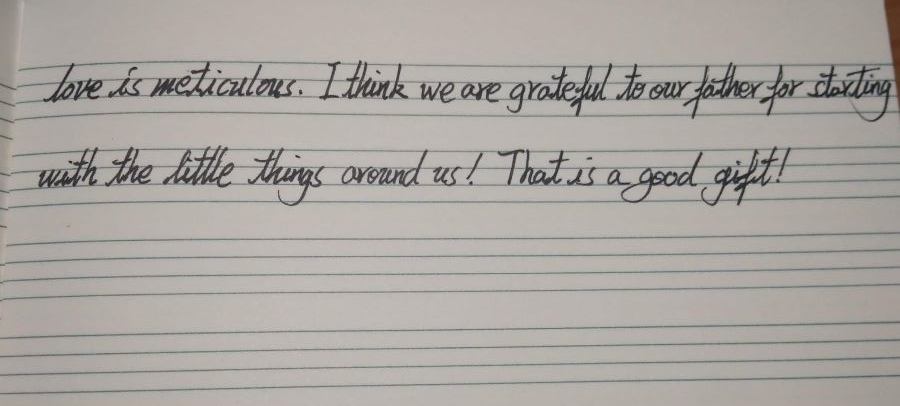 love is meticulous. I think we are grateful to our father for starting
with the little things around us! That is a good gift!